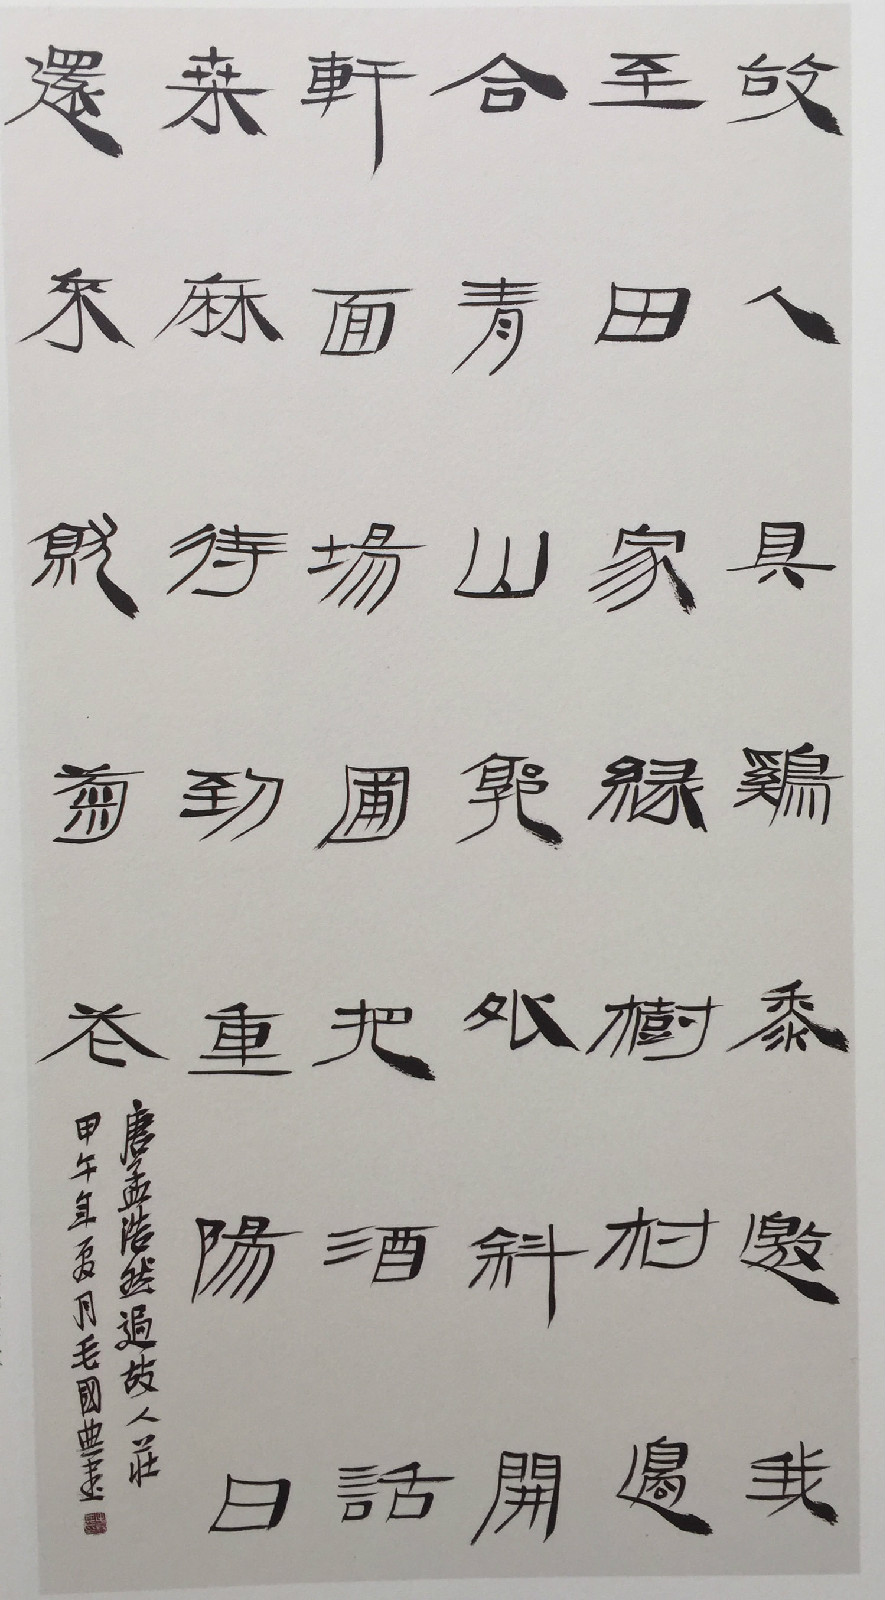 故人具鷄黍邀我
至田家緑樹村邊
合青山郭外斜開
軒面場圃把酒話
桒麻待到重陽日
還来就菊花
唐孟浩然過故人莊
甲午年夏月毛國典書